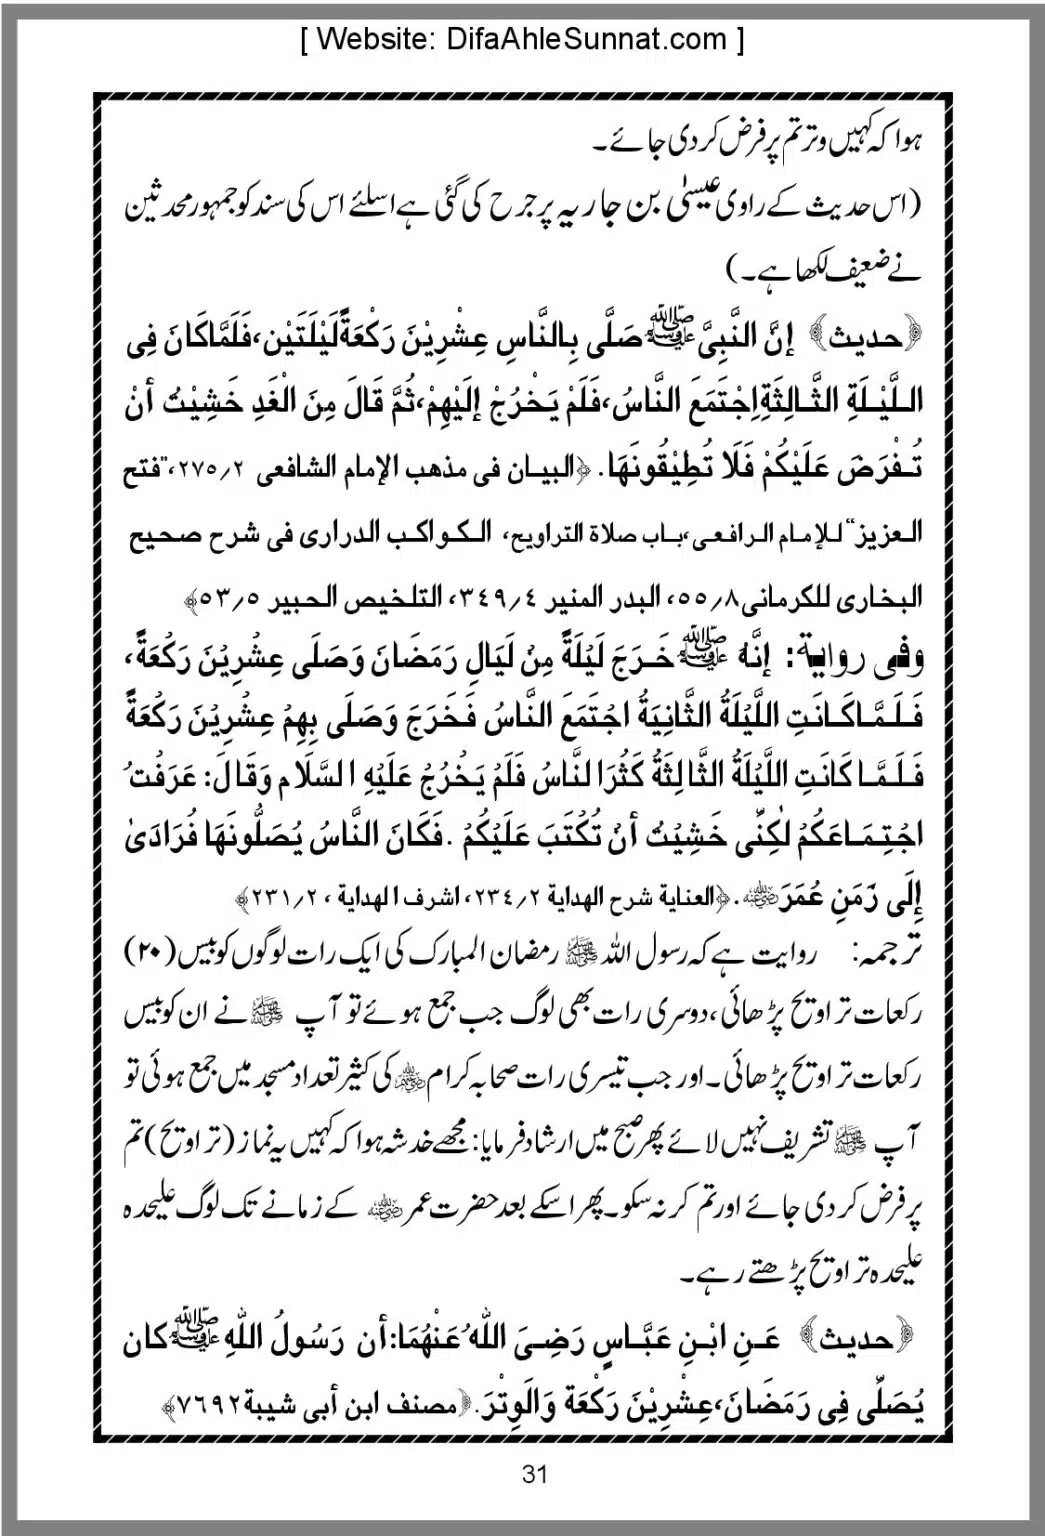 [ Website: DifaAhleSunnat.com ]
ہوا کہ کہیں وتر تم پر فرض کر دی جائے۔
(اس حدیث کے راوی عیسیٰ بن جاریہ پر جرح کی گئی ہے اسلئے اس کی سند کو جمہور محدثین
نے ضعیف لکھا ہے۔)
﴿حدیث﴾ إنَّ النَّبِیَّ ﷺ صَلَّى بِالنَّاسِ عِشْرِیْنَ رَكْعَةً لَیْلَتَیْنِ،فَلَمَّا كَانَ فِی
الـلَّیْـلَةِ الثَّـالِثَةِ اِجْتَمَعَ النَّاسُ،فَلَمْ یَخْرُجْ إلَیْهِمْ،ثُمَّ قَالَ مِنَ الْغَدِ خَشِیْتُ أنْ
تُـفْرَضَ عَلَیْكُمْ فَلَا تُطِیْقُونَهَا. ﴿البیـان فی مذهب الإمام الشافعی ۲؍۲۷۵،”فتح
الـعزیز“ لـلإمـام الـرافـعـی،بـاب صلاة التراویح، الـكـواكـب الدراری فی شرح صـحیح
البخاری للكرمانی۸؍۵۵، البدر المنیر ۴؍۳۴۹، التلخیص الحبیر ۵؍۵۳﴾
وفی روایة: إنَّهُ ﷺ خَـرَجَ لَیْلَةً مِنْ لَیَالِ رَمَضَانَ وَصَلَى عِشْرِیْنَ رَكْعَةً،
فَـلَـمَّـا كَـانَتِ اللَّیْلَةُ الثَّانِیَةُ اجْتَمَعَ النَّاسُ فَـخَرَجَ وَصَلَى بِهِمْ عِشْرِیْنَ رَكْعَةً
فَـلَـمَّـا كَانَتِ اللَّیْلَةُ الثَّالِثَةُ كَثُرَ النَّاسُ فَلَمْ یَخْرُجْ عَلَیْهِ السَّلَام وَقَالَ: عَرَفْتُ
اجْتِـمَـاعَكُمْ لٰكِنِّی خَشِیْتُ أنْ تُكْتَبَ عَلَیْكُمْ .فَكَانَ النَّاسُ یُصَلُّونَهَا فُرَادَىٰ
إلَى زَمَنِ عُمَرَ ؓ. ﴿العنایة شرح الهدایة ۲؍۲۳۴، اشرف الهدایة ، ۲؍۲۳۱﴾
ترجمہ: روایت ہے کہ رسول اللہ ﷺ رمضان المبارک کی ایک رات لوگوں کو بیس (۲۰)
رکعات تراویح پڑھائی،دوسری رات بھی لوگ جب جمع ہوئے تو آپ ﷺ نے ان کو بیس
رکعات تراویح پڑھائی۔اور جب تیسری رات صحابہ کرام ؓ کی کثیر تعداد مسجد میں جمع ہوئی تو
آپ ﷺ تشریف نہیں لائے پھر صبح میں ارشاد فرمایا: مجھے خدشہ ہوا کہ کہیں یہ نماز (تراویح) تم
پر فرض کر دی جائے اور تم کر نہ سکو۔ پھر اسکے بعد حضرت عمر ؓ کے زمانے تک لوگ علیحدہ
علیحدہ تراویح پڑھتے رہے۔
﴿حدیث﴾ عَـنِ ابْـنِ عَبَّـاسٍ رَضِـیَ اللّٰهُ عَنْهُمَا:أن رَسُولُ اللّٰهِ ﷺ كان
یُصَلِّی فِی رَمَضَانَ،عِشْرِیْنَ رَكْعَة وَالَوِتْرَ. ﴿مصنف ابن أبی شیبة۷٦۹۲﴾
31